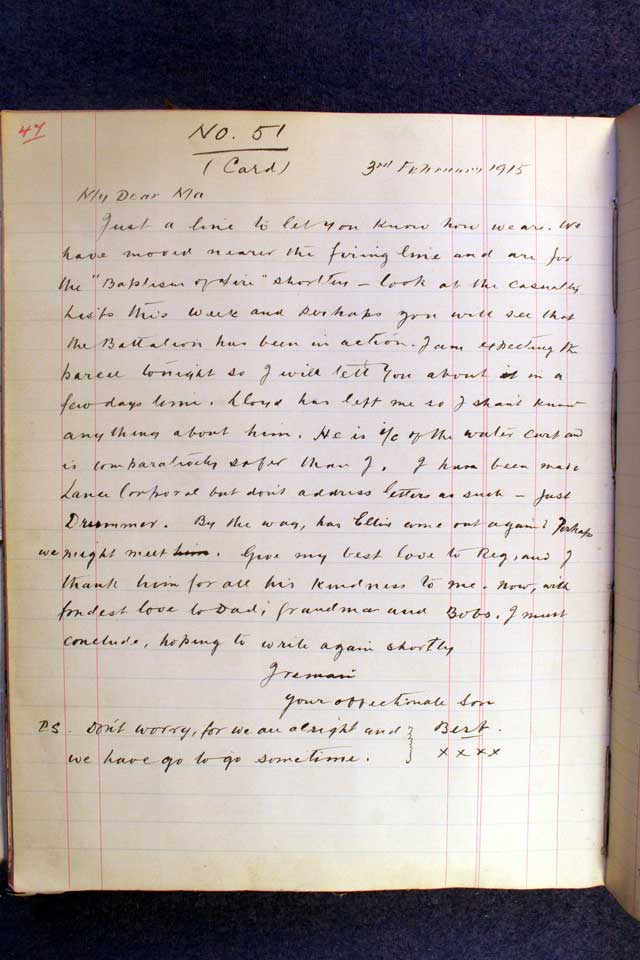 47
No. 51
(Card)
3rd February 1915
My Dear Ma
Just a line to let you know how we are. We
have moved nearer the firing line and are for
the "Baptism of Fire" shortly – look at the casualty
Lists this week and perhaps you will see that
the Battalion has been in action. I am expecting the
parcel tonight so I will tell you about it in a
few days time. Lloyd has left me so I shan't know
anything about him. He is i/c of the water cart and
is comparatively safer than I. I have been made
Lance Corporal but don't address letters as such – just
Drummer. By the way, has Ellis come out again? Perhaps
we might meet him. Give my best love to Reg, and I
thank him for all his kindness to me. Now, with
fondest love to Dad, Grandma and Bobs. I must
conclude, hoping to write again shortly
I remain
Your affectionate son
P.S. Don't worry, for we are alright and } Bert.
we have go to go sometime. x x x x